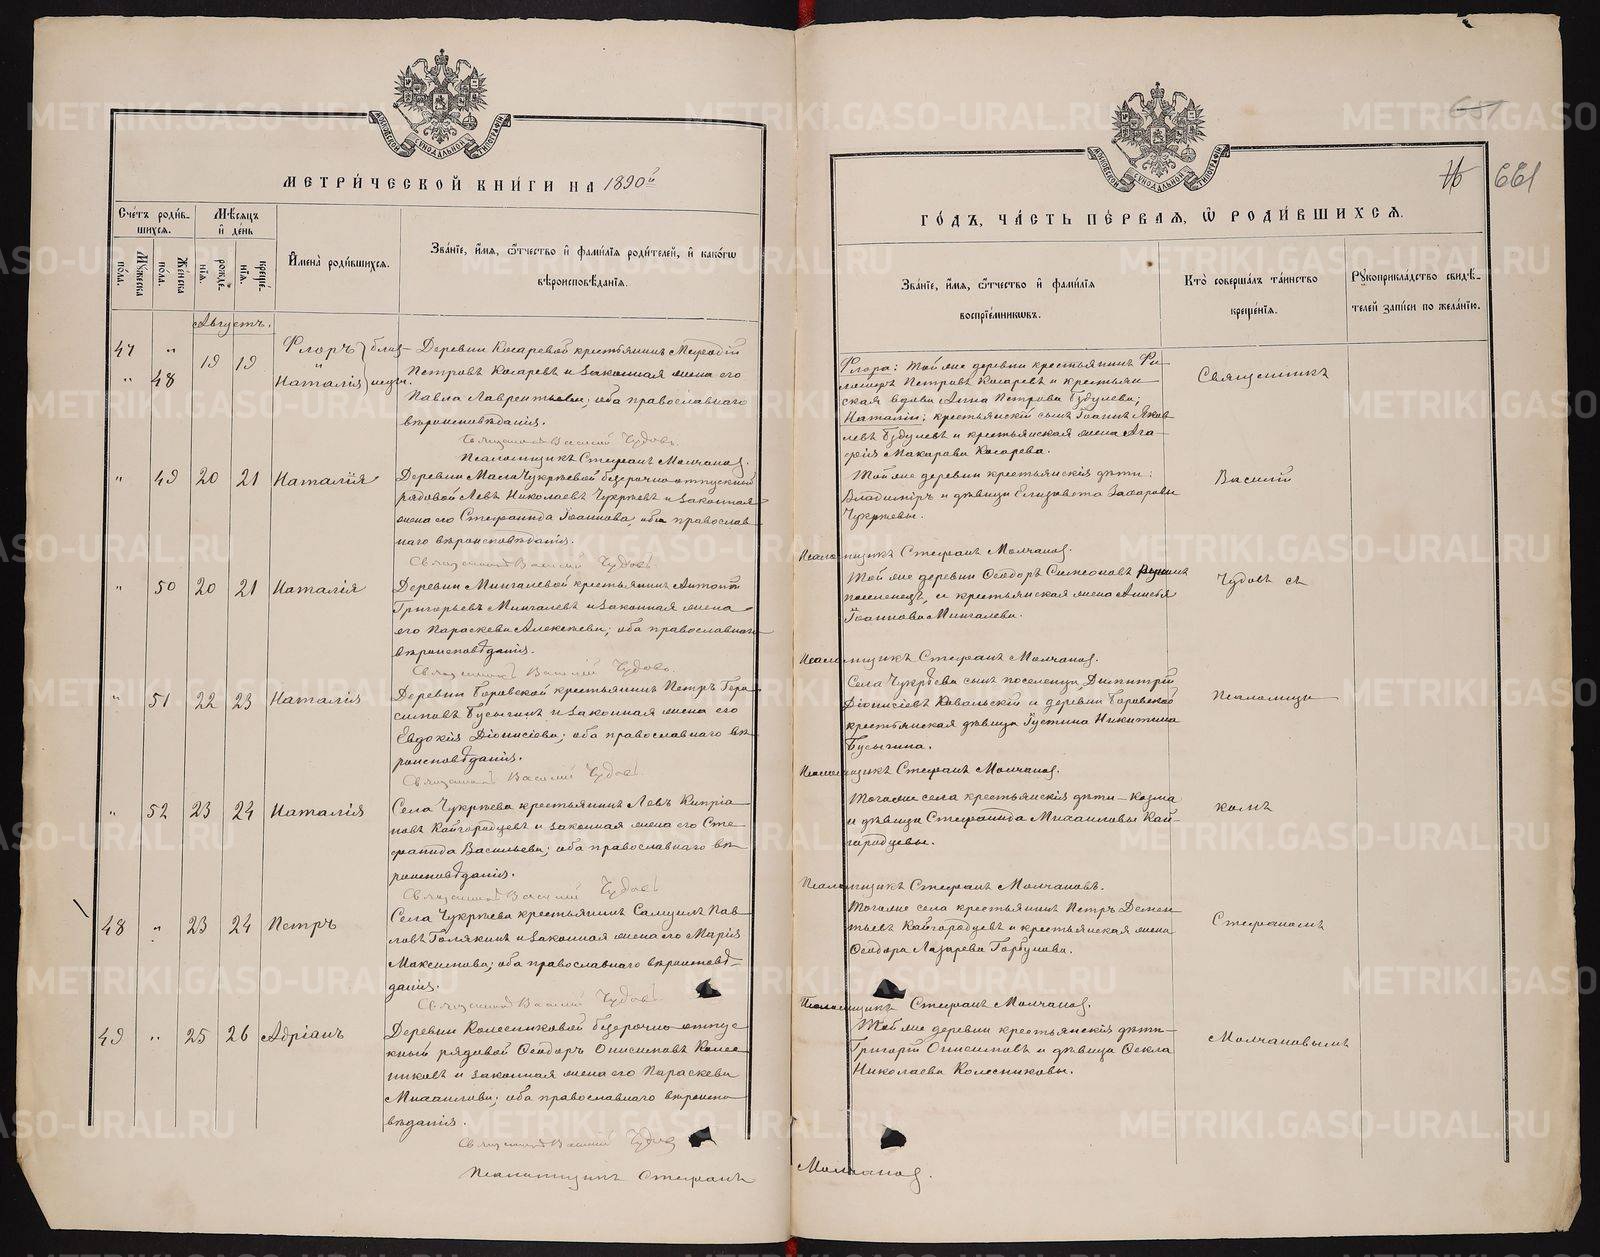 МЕТРИЧЕСКОЙ КНИГИ НА 1890й
Счетъ родив-
шихся.
Мѣсяцъ
и день
Мужеска
пола.
Женска
пола.
рожде-
нія.
креще-
нія.
Имена родившихся.
Званіе, имя, отчество и фамилія родителей, и какого
вѣроисповѣданія.
Августъ.
47 " 19 19 Флоръ } близ-
" 48 Наталія } нецы.
Деревни Косаревой крестьянинъ Меѳодій
Петровъ Косаревъ и законная жена его
Павла Лаврентьева; оба православнаго
вѣроисповѣданія.
Священникъ Василій Чудовъ.
Псаломщикъ Стефанъ Молчанов.
" 49 20 21 Наталія
Деревни Мало Чукрѣевой безсрочно отпускный
рядовой Левъ Николаевъ Чукрѣевъ и законная
жена его Стефанида Іоаннова, оба православ-
наго вѣроисповѣданія.
Священникъ Василій Чудовъ.
" 50 20 21 Наталія
Деревни Мингалевой крестьянинъ Антоній
Григорьевъ Мингалевъ и законная жена
его Параскева Алексѣева; оба православнаго
вѣроисповѣданія.
Священникъ Василій Чудовъ.
" 51 22 23 Наталія
Деревни Боровской крестьянинъ Петръ Гера-
симовъ Бусыгинъ и законная жена его
Евдокія Діонисіева; оба православнаго вѣ-
роисповѣданія.
Священникъ Василій Чудовъ
" 52 23 24 Наталія
Села Чукрѣева крестьянинъ Левъ Кипріа-
новъ Кайгородцевъ и законная жена его Сте-
фанида Васильева; оба православнаго вѣ-
роисповѣданія.
Священникъ Василій Чудовъ
48 " 23 24 Петръ
Села Чукрѣева крестьянинъ Самуилъ Пав-
ловъ Голякинъ и законная жена его Марія
Максимова; оба православнаго вѣроисповѣ-
данія.
Священникъ Василій Чудовъ
49 " 25 26 Адріанъ
Деревни Колесниковой безсрочно отпус-
кный рядовой Ѳеодоръ Онисимовъ Колес-
никовъ и законная жена его Параскева
Михаилова; оба православнаго вѣроиспо-
вѣданія.
Священникъ Василій Чудов
Псаломщикъ Стефанъ
661
ГОДЪ, ЧАСТЬ ПЕРВАЯ, Ѡ РОДИВШИХСЯ.
Званіе, имя, отчество и фамилія
воспріемниковъ.
Кто совершалъ таинство
крещенія.
Рукоприкладство свидѣ-
телей записи по желанію.
Флора: той же деревни крестьянинъ Фи-
лимонъ Петровъ Косаревъ и крестьян-
ская вдова Анна Петрова Будулева;
Наталіи: крестьянскій сынъ Іоаннъ Яков-
левъ Будулевъ и крестьянская жена Ага-
фія Макарова Косарева.
Той же деревни крестьянскія дѣти:
Владиміръ и дѣвица Елизавета Захаровы
Чукрѣевы.
Псаломщикъ Стефанъ Молчанов.
Той же деревни Ѳеодоръ Симеоновъ
поселенецъ, и крестьянская жена Анисья
Іоаннова Мингалева.
Псаломщикъ Стефанъ Молчанов.
Села Чукрѣева сынъ поселенца, Димитрій
Діонисіевъ Ковальскій и деревни Боровской
крестьянская дѣвица Іустина Никитина
Бусыгина.
Псаломщикъ Стефанъ Молчанов.
Тогоже села крестьянскія дѣти – Козма
и дѣвица Стефанида Михаиловы Кай-
городцевы.
Псаломщикъ Стефанъ Молчановъ.
Тогоже села крестьянинъ Петръ Демен-
тьевъ Кайгородцевъ и крестьянская жена
Ѳеодора Лазарева Горбунова.
Псаломщикъ Стефанъ Молчанов.
Той же деревни крестьянскія дѣти –
Григорій Онисимовъ и дѣвица Ѳекла
Николаева Колесниковы.
Молчанов.
Священникъ
Василій
Чудовъ съ
псаломщи-
комъ
Стефаномъ
Молчановымъ
METRIKI.GASO-URAL.RU